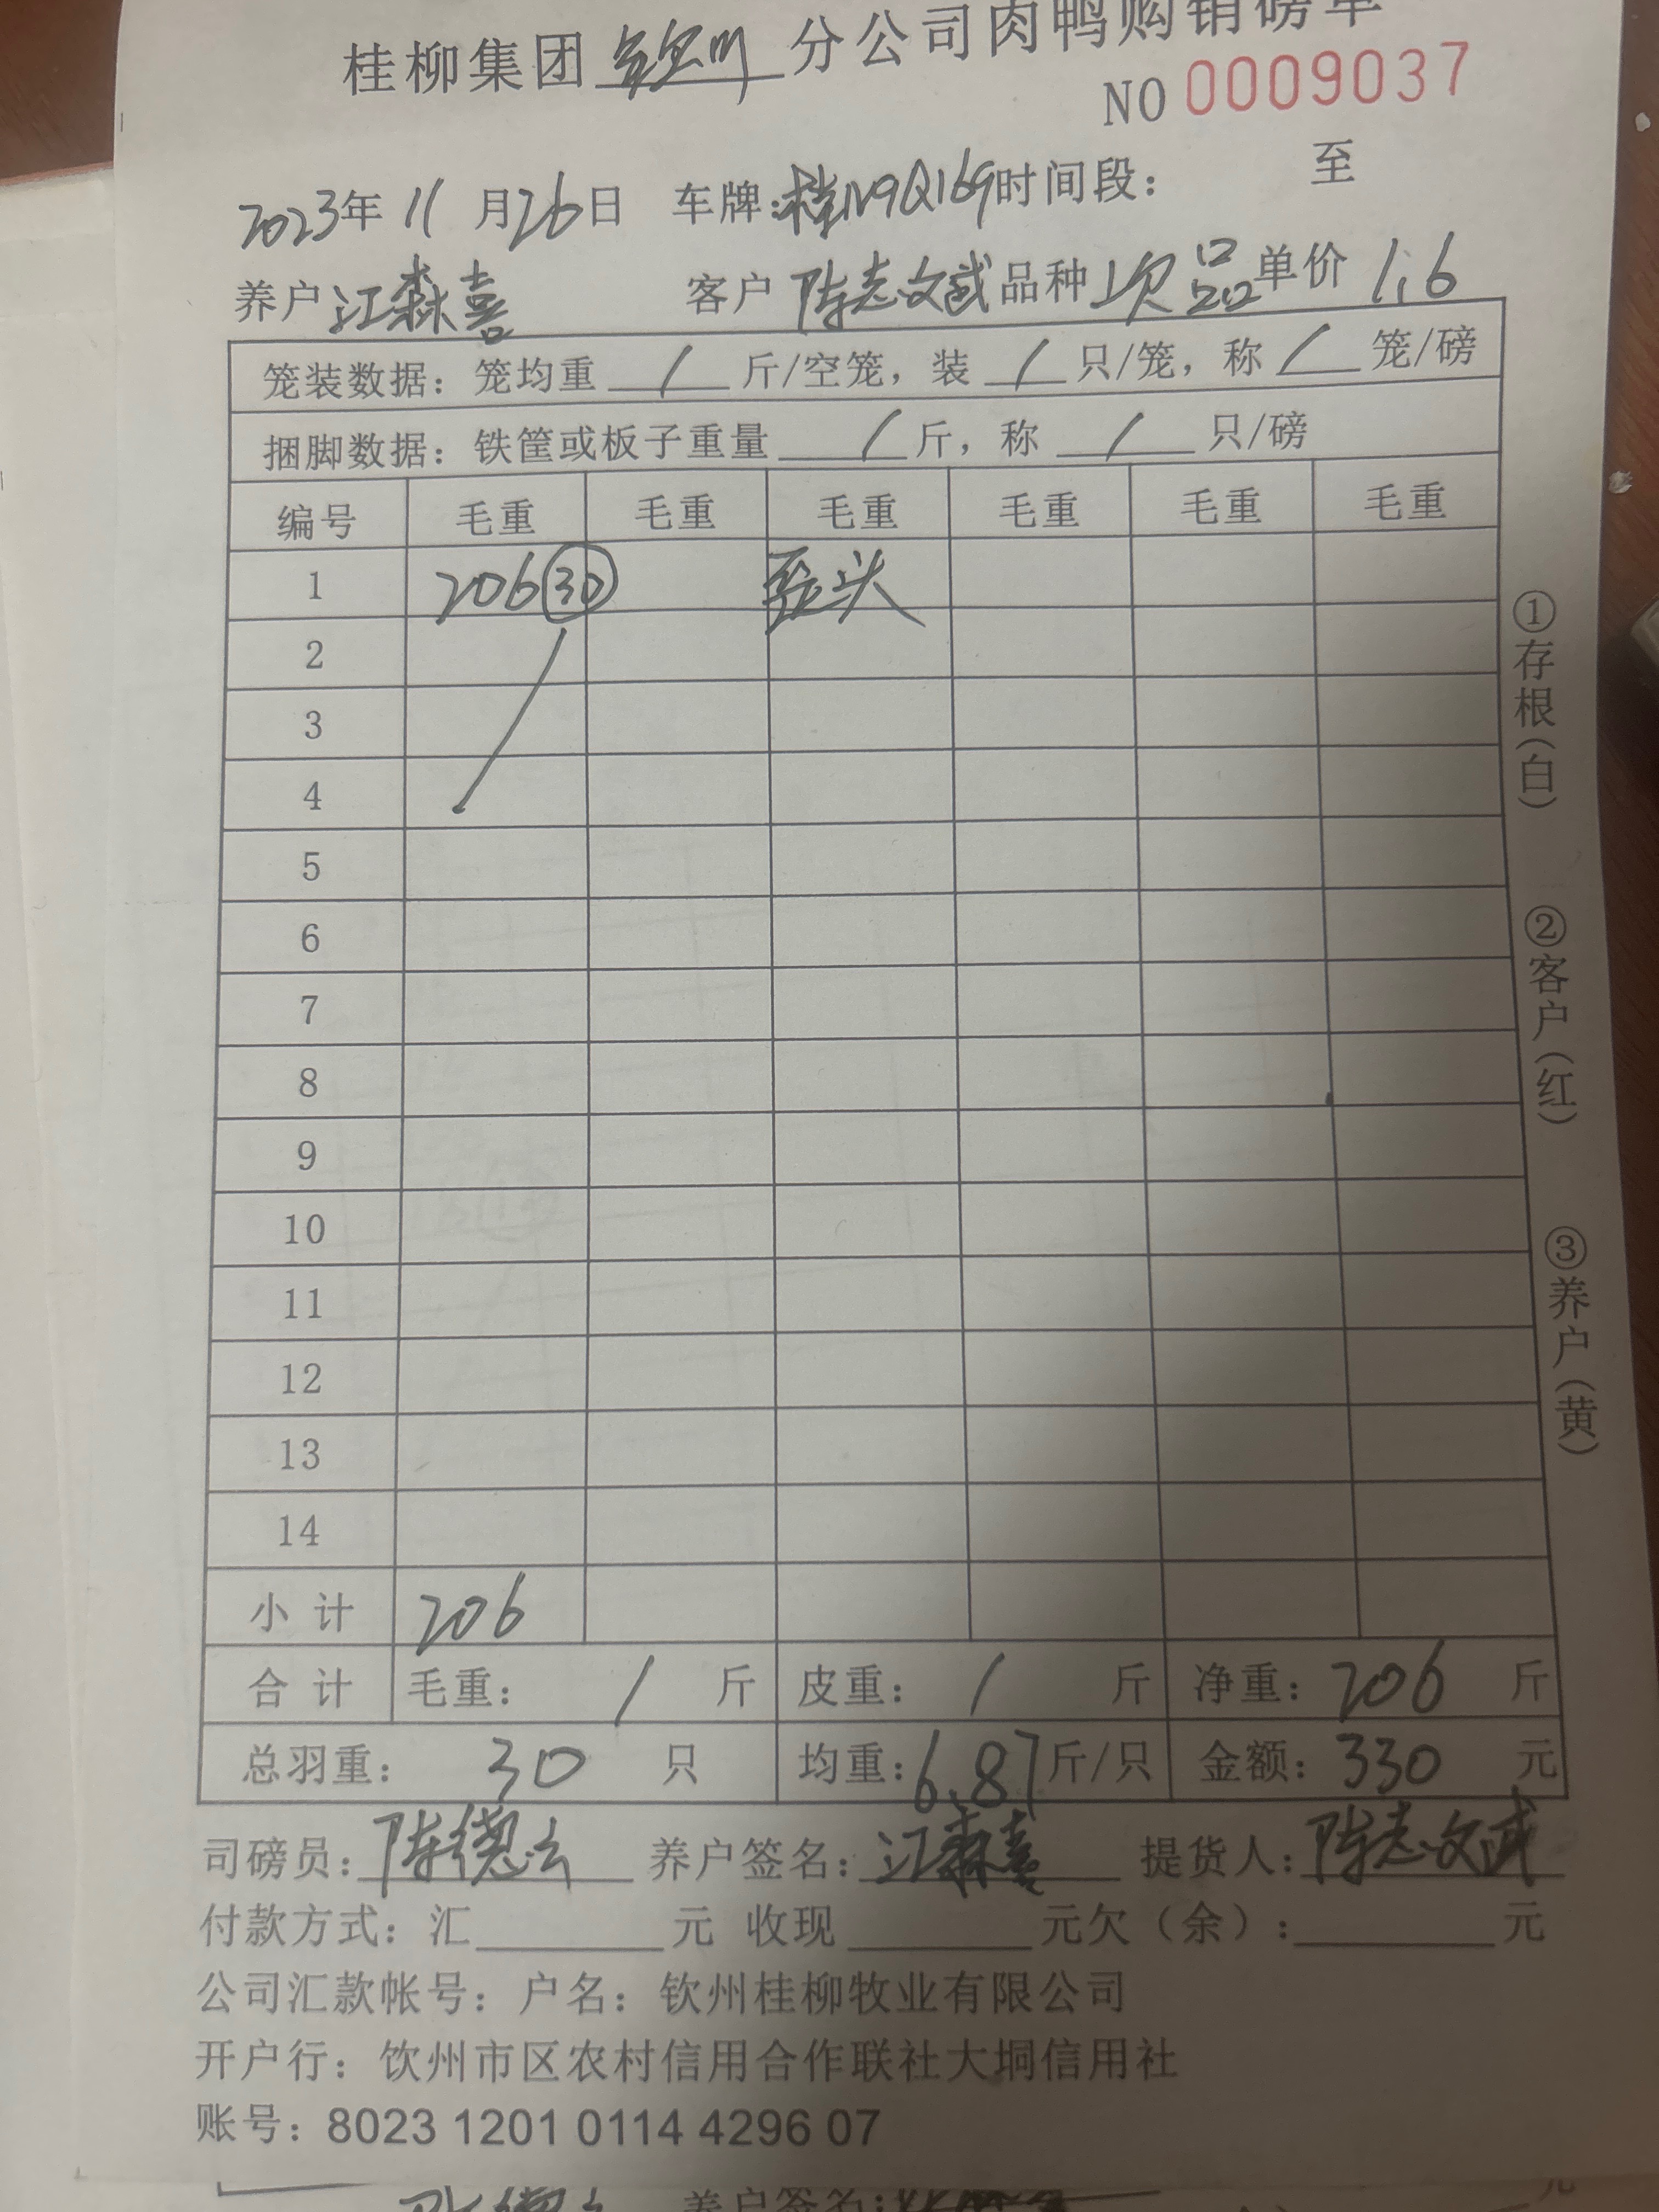 桂柳集团 钦州 分公司肉鸭购销磅单
NO 0009037
2023年 11 月 26 日 车牌:桂N9Q169 时间段: 至
养户 江森喜 客户 陈志文武 品种 次品 单价 1.6
笼装数据: 笼均重 / 斤/空笼, 装 / 只/笼, 称 / 笼/磅
捆脚数据: 铁筐或板子重量 / 斤, 称 / 只/磅
编号 毛重 毛重 毛重 毛重 毛重 毛重
1 206 30 歪头
2
3
4
5
6
7
8
9
10
11
12
13
14
小计 206
合计 毛重: / 斤 皮重: / 斤 净重: 206 斤
总羽重: 30 只 均重: 6.87 斤/只 金额: 330 元
司磅员: 陈德云 养户签名: 江森喜 提货人: 陈志文武
付款方式: 汇 元 收现 元欠(余): 元
公司汇款帐号: 户名: 钦州桂柳牧业有限公司
开户行: 饮州市区农村信用合作联社大垌信用社
账号: 8023 1201 0114 4296 07
①存根(白)
②客户(红)
③养户(黄)
养户签名:
元